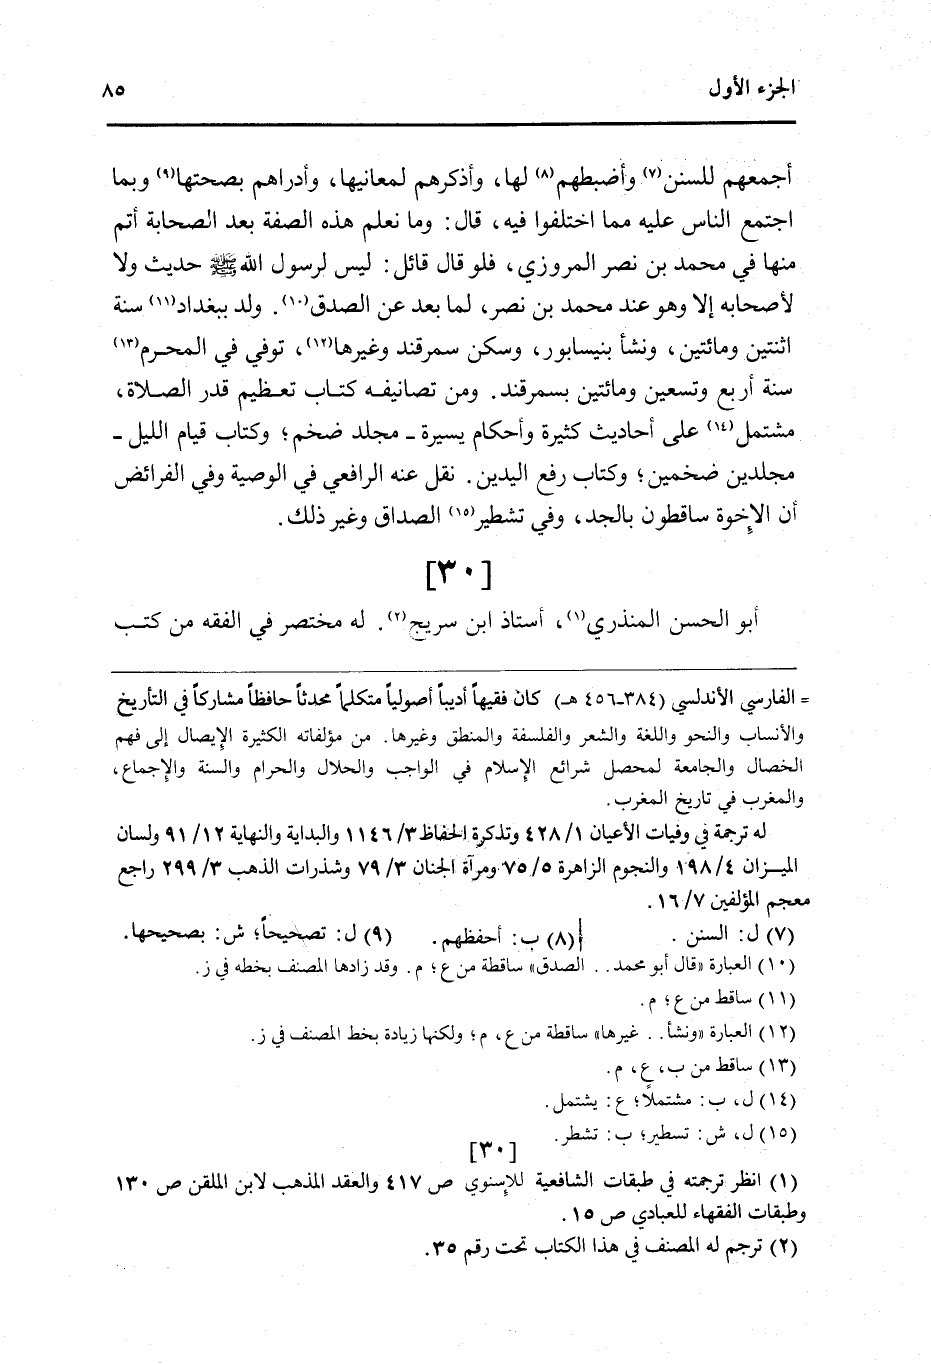 الجزء الأول ٨٥
أجمعهم للسنن(٧) وأضبطهم(٨) لها، وأذكرهم لمعانيها، وأدراهم بصحتها(٩) وبما
اجتمع الناس عليه مما اختلفوا فيه، قال: وما نعلم هذه الصفة بعد الصحابة أتم
منها في محمد بن نصر المروزي، فلو قال قائل: ليس لرسول الله ﷺ حديث ولا
لأصحابه إلا وهو عند محمد بن نصر، لما بعد عن الصدق(١٠). ولد ببغداد(١١) سنة
اثنتين ومائتين، ونشأ بنيسابور، وسكن سمرقند وغيرها(١٢)، توفي في المحرم(١٣)
سنة أربع وتسعين ومائتين بسمرقند. ومن تصانيفه كتاب تعظيم قدر الصلاة،
مشتمل(١٤) على أحاديث كثيرة وأحكام يسيرة ـ مجلد ضخم؛ وكتاب قيام الليل ـ
مجلدين ضخمين؛ وكتاب رفع اليدين. نقل عنه الرافعي في الوصية وفي الفرائض
أن الإخوة ساقطون بالجد، وفي تشطير(١٥) الصداق وغير ذلك.
[٣٠]
أبو الحسن المنذري(١)، أستاذ ابن سريج(٢). له مختصر في الفقه من كتب
= الفارسي الأندلسي (٣٨٤ـ٤٥٦ هـ) كان فقيهاً أديباً أصولياً متكلماً محدثاً حافظاً مشاركاً في التأريخ
والأنساب والنحو واللغة والشعر والفلسفة والمنطق وغيرها. من مؤلفاته الكثيرة الإيصال إلى فهم
الخصال والجامعة لمحصل شرائع الإسلام في الواجب والحلال والحرام والسنة والإجماع،
والمغرب في تاريخ المغرب.
له ترجمة في وفيات الأعيان ١/ ٤٢٨ وتذكرة الحفاظ ٣/ ١١٤٦ والبداية والنهاية ١٢/ ٩١ ولسان
الميزان ٤/ ١٩٨ والنجوم الزاهرة ٥/ ٧٥ ومرآة الجنان ٣/ ٧٩ وشذرات الذهب ٣/ ٢٩٩ راجع
معجم المؤلفين ٧/ ١٦.
(٧) ل: السنن. (٨) ب: أحفظهم. (٩) ل: تصحيحاً؛ ش: بصحيحها.
(١٠) العبارة «قال أبو محمد.. الصدق» ساقطة من ع؛ م. وقد زادها المصنف بخطه في ز.
(١١) ساقط من ع؛ م.
(١٢) العبارة «ونشأ.. غيرها» ساقطة من ع، م؛ ولكنها زيادة بخط المصنف في ز.
(١٣) ساقط من ب، ع، م.
(١٤) ل، ب: مشتملاً؛ ع: يشتمل.
(١٥) ل، ش: تسطير؛ ب: تشطر.
[٣٠]
(١) انظر ترجمته في طبقات الشافعية للإسنوي ص ٤١٧ والعقد المذهب لابن الملقن ص ١٣٠
وطبقات الفقهاء للعبادي ص ١٥.
(٢) ترجم له المصنف في هذا الكتاب تحت رقم ٣٥.